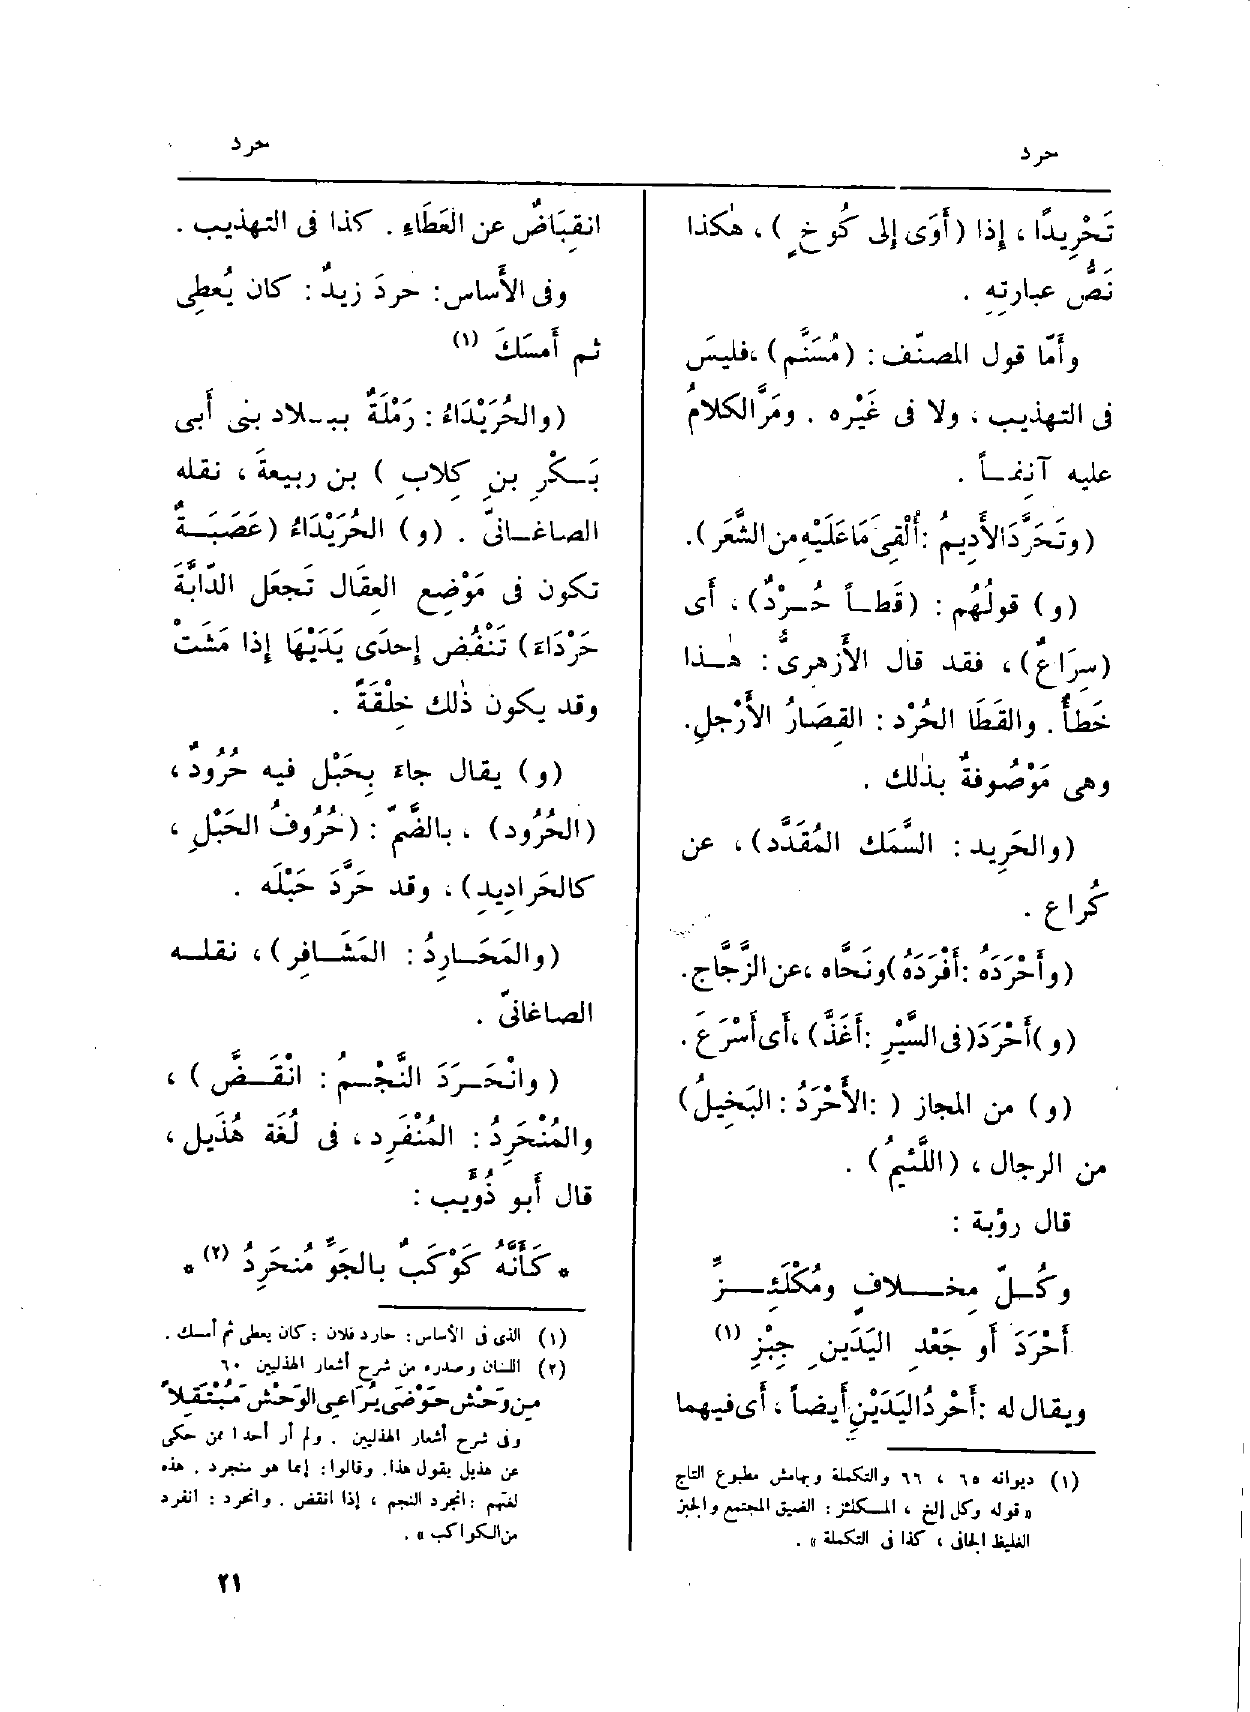 حرد
حرد
تَحْرِيدًا ، إِذا (أَوَى إِلى كُوخٍ ) ، هٰكذا
نَصُّ عبارتِهِ .
وأَمّا قول المصنّف : (مُسَنَّم) ، فليسَ
فى التهذيب ، ولا فى غَيْره . ومَرَّ الكلامُ
عليه آنِفـاً .
(وتَحَرَّدَ الأَدِيمُ : أُلْقِىَ مَا عَلَيْهِ من الشَّعَر ).
(و) قولُهُم : (قَطـاً حُـرْدٌ) ، أَى
(سِرَاعٌ) ، فقد قال الأَزهرىُّ : هٰـذا
خَطأٌ . والقَطَا الحُرْد : القِصَارُ الأَرْجلِ.
وهى مَوْصُوفةٌ بذٰلك .
(والحَرِيد : السَّمَك المُقَدَّد) ، عن
كُراع .
(وأَحْرَدَهُ : أَفْرَدَهُ) ونَحَّاه ، عن الزَّجّاج.
(و) أَحْرَدَ (فى السَّيْرِ : أَغَذَّ) ، أَى أَسْرَعَ .
(و) من المجاز ( : الأَحْرَدُ : البَخِيلُ)
من الرجال ، (اللَّئيمُ) .
قال رؤبة :
وكُـلّ مِخـــلافٍ ومُكْلَئِـــزِّ
أَحْرَدَ أَو جَعْدِ اليَدَينِ جِبْزِ (١)
ويقال له : أَحْردُ اليَدَيْنِ أَيضاً ، أَى فيهما
(١) ديوانه ٦٥ ، ٦٦ والتكملة وبهامش مطبوع التاج
« قوله وكل إلخ ، المـكلئز : الضيق المجتمع والجبز
الغليظ الجافى ، كذا فى التكملة » .
انقِبَاضٌ عن العَطَاءِ . كذا فى التهذيب .
وفى الأَساس : حردَ زيدٌ : كان يُعطِى
ثم أَمسَكَ (١)
(والحُرَيْدَاءُ : رَمْلَةٌ ببـلاد بنى أَبى
بَـكْرِ بنِ كِلابِ ) بن ربيعةَ ، نقله
الصاغـانىّ . (و) الحُرَيْدَاءُ (عَصَبَـةٌ
تكون فى مَوْضِع العِقَال تَجعَل الدّابَّةَ
حَرْدَاءَ) تَنْفُض إِحدَى يَدَيْهَا إِذا مَشَتْ
وقد يكون ذٰلك خِلْقَةً .
(و) يقال جاءَ بِحَبْل فيه حُرُودٌ ،
(الحُرُود) ، بالضَّمّ : (حُرُوفُ الحَبْلِ ،
كالحَراديدِ) ، وقد حَرَّدَ حَبْلَه .
(والمَحَـارِدُ : المَشَـافِر) ، نقلـه
الصاغانىّ .
(وانْحَـرَدَ النَّجْـمُ : انْقَـضَّ ) ،
والمُنْحَرِدُ : المُنْفَرِد ، فى لُغَة هُذَيل ،
قال أَبو ذُؤَيب :
* كَأَنَّهُ كَوْكَبٌ بالجَوِّ مُنحَرِدُ (٢) *
(١) الذى فى الأساس : حارد فلان : كان يعطى ثم أمسك .
(٢) اللسان وصدره من شرح أشعار الهذليين ٦٠
مِن وَحْش حَوْضَى يُرَاعِى الوَحْشَ مُبْتَقِلاً
وفى شرح أشعار الهذليين . ولم أر أحدا ممن حكى
عن هذيل يقول هذا. وقالوا : إنما هو منجرد . هذه
لغتهم : انجرد النجم ، إذا انقض . وانحرد : انفرد
من الكواكب » .
٢١